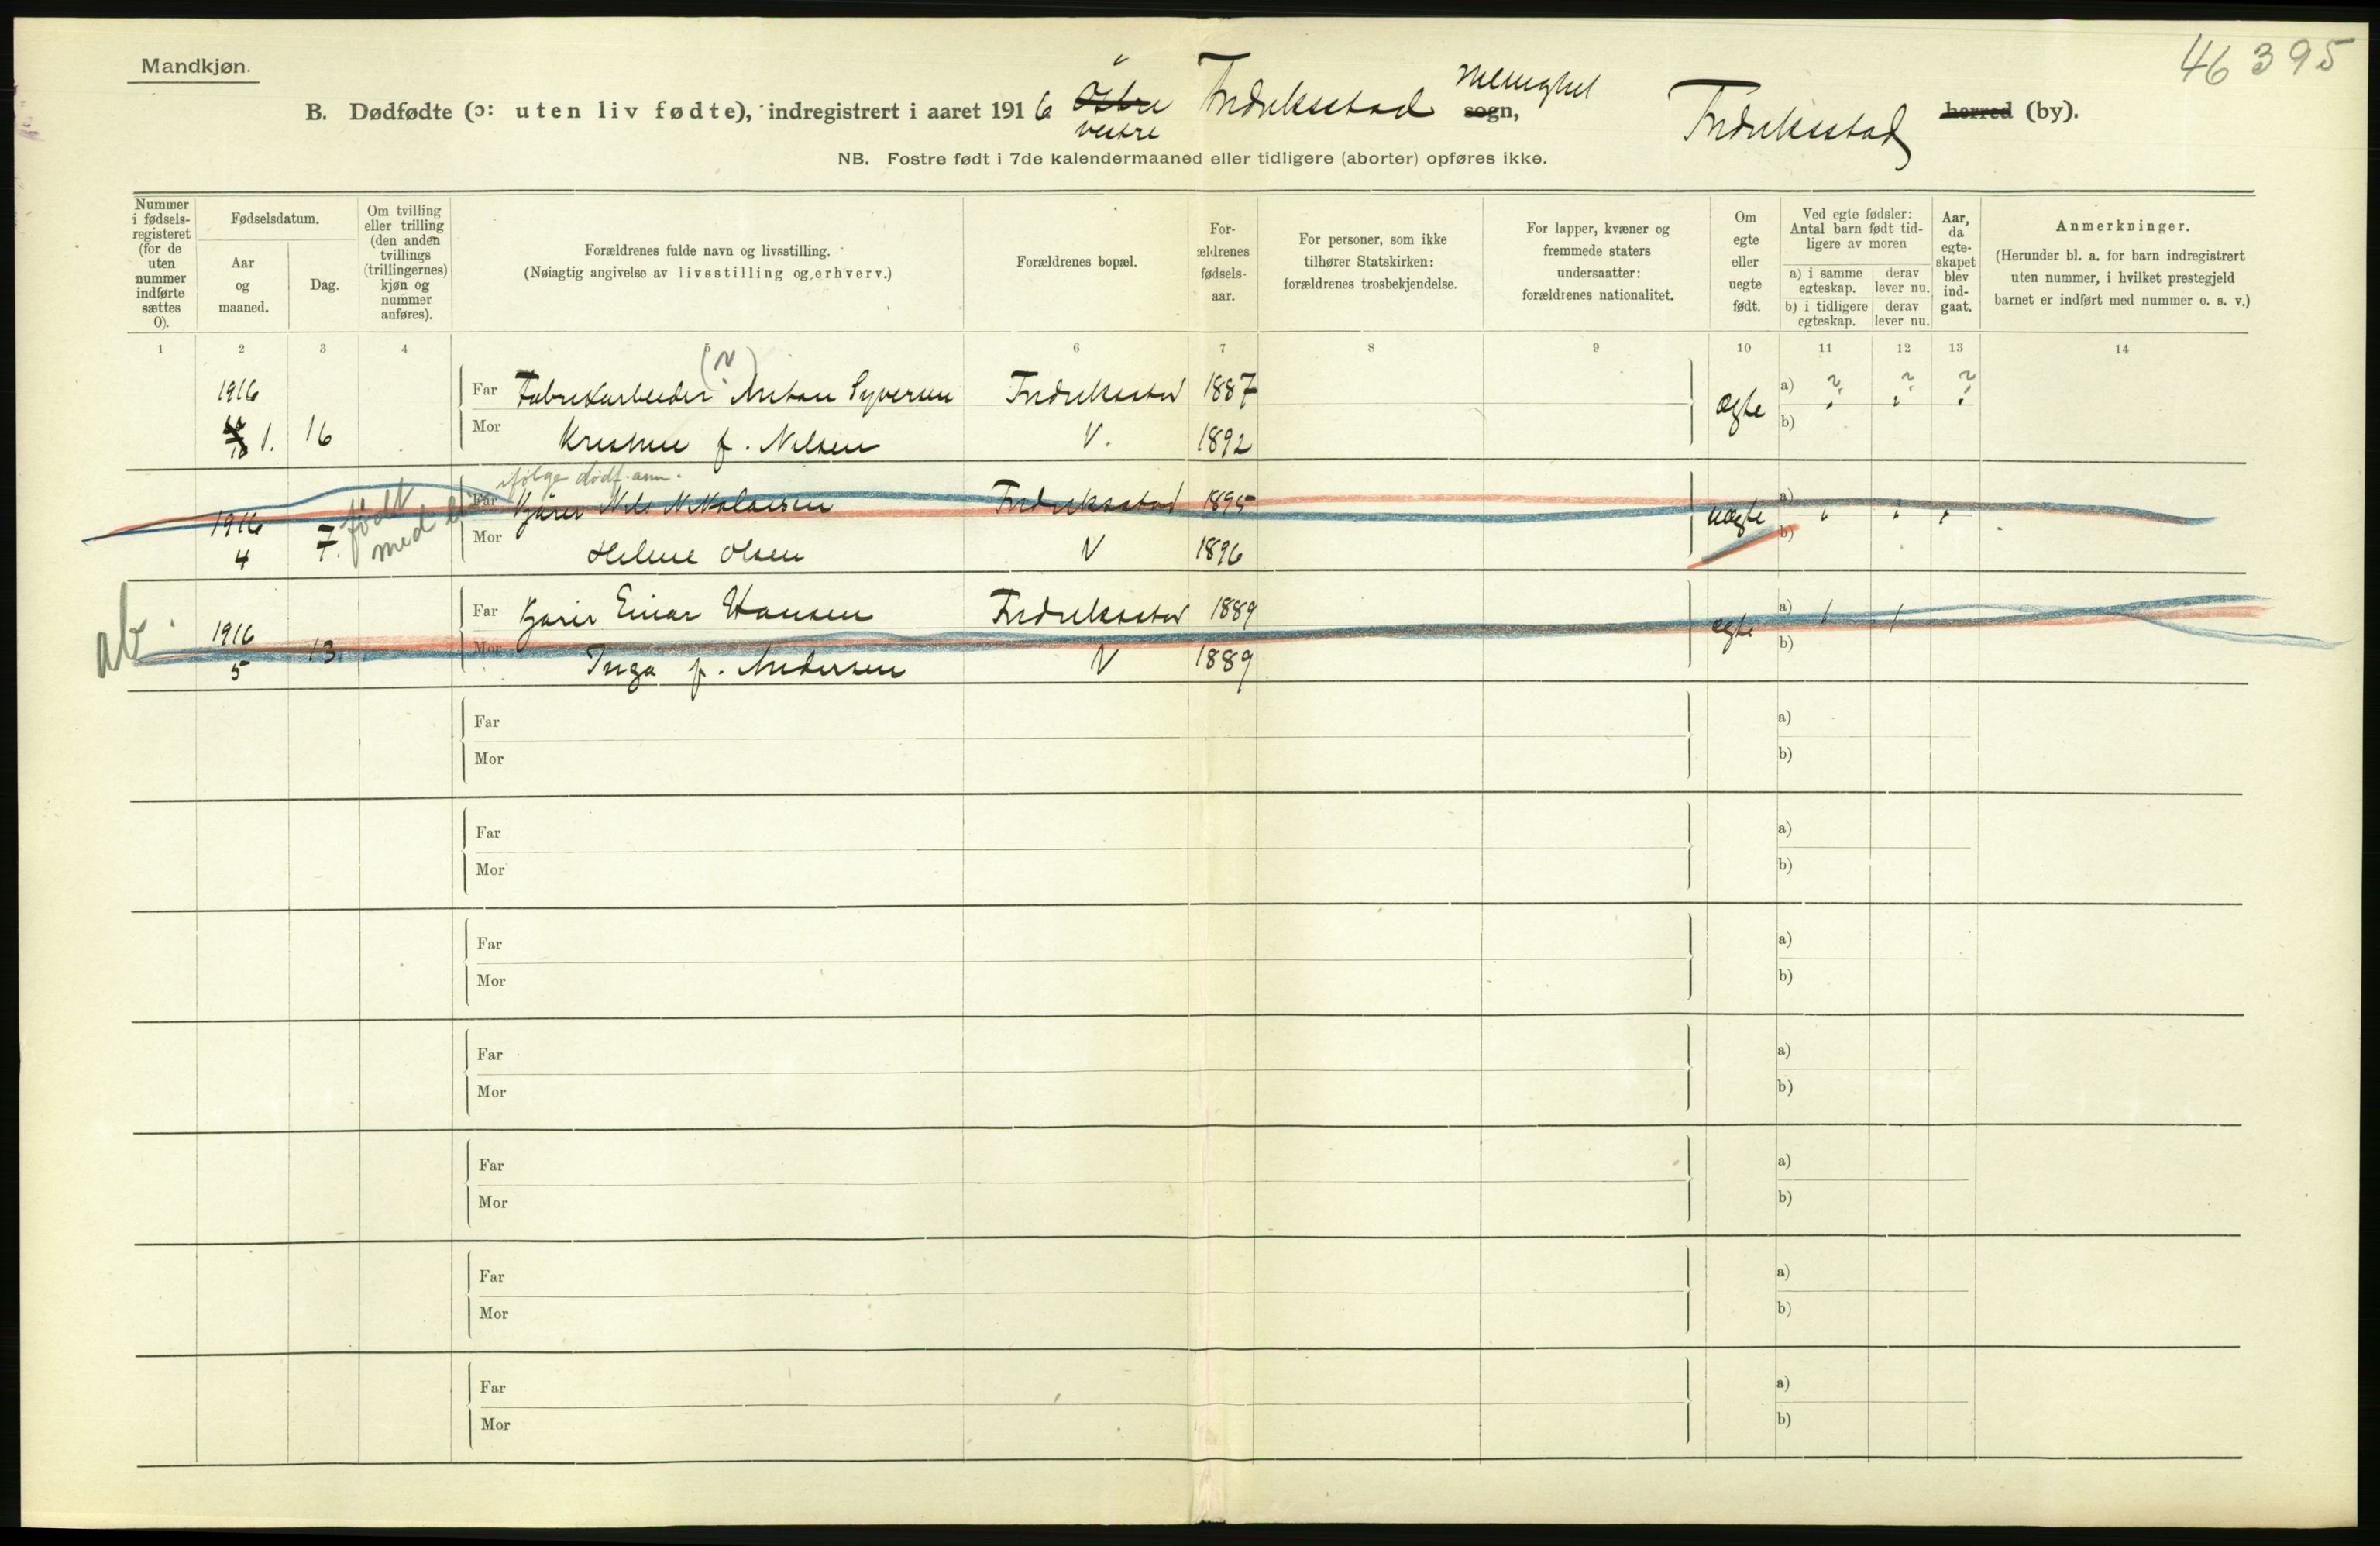 Mandkjøn.
46 395
B. Dødfødte (ɔ: uten liv fødte), indregistrert i aaret 1916 Østre vestre Fredriksstad sogn, Menighet Fredriksstad herred (by).
NB. Fostre født i 7de kalendermaaned eller tidligere (aborter) opføres ikke.
Nummer i fødsels-registeret (for de uten nummer indførte sættes 0).
Fødselsdatum.
Aar og maaned.
Dag.
Om tvilling eller trilling (den anden tvillings (trillingernes) kjøn og nummer anføres).
Forældrenes fulde navn og livsstilling.
(Nøiagtig angivelse av livsstilling og erhverv.)
Forældrenes bopæl.
For-ældrenes fødsels-aar.
For personer, som ikke tilhører Statskirken: forældrenes trosbekjendelse.
For lapper, kvæner og fremmede staters undersaatter: forældrenes nationalitet.
Om egte eller uegte født.
Ved egte fødsler: Antal barn født tid-ligere av moren
a) i samme egteskap.
derav lever nu.
b) i tidligere egteskap.
derav lever nu.
Aar, da egte-skapet blev ind-gaat.
Anmerkninger.
(Herunder bl. a. for barn indregistrert uten nummer, i hvilket prestegjeld barnet er indført med nummer o. s. v.)
1 2 3 4 5 6 7 8 9 10 11 12 13 14
(N)
1916 Far Fabrikarbeider Anton Syversen Fredriksstad 1887 ægte a) ? ? ?
1. 16 Mor Kristine f. Nilsen V. 1892 b)
ifølge dødf. anm.
født med
1916 7 Far Kjører Nils Nikolaisen Fredriksstad 1895 uægte a)
4 7. Mor Helene Olsen V 1896 b)
ab.
1916 13. Far Kjører Einar Hansen Fredriksstad 1889 ægte a) 1 1
5 Mor Inga f. Andersen V 1889 b)
Far a)
Mor b)
Far a)
Mor b)
Far a)
Mor b)
Far a)
Mor b)
Far a)
Mor b)
Far a)
Mor b)
Far a)
Mor b)